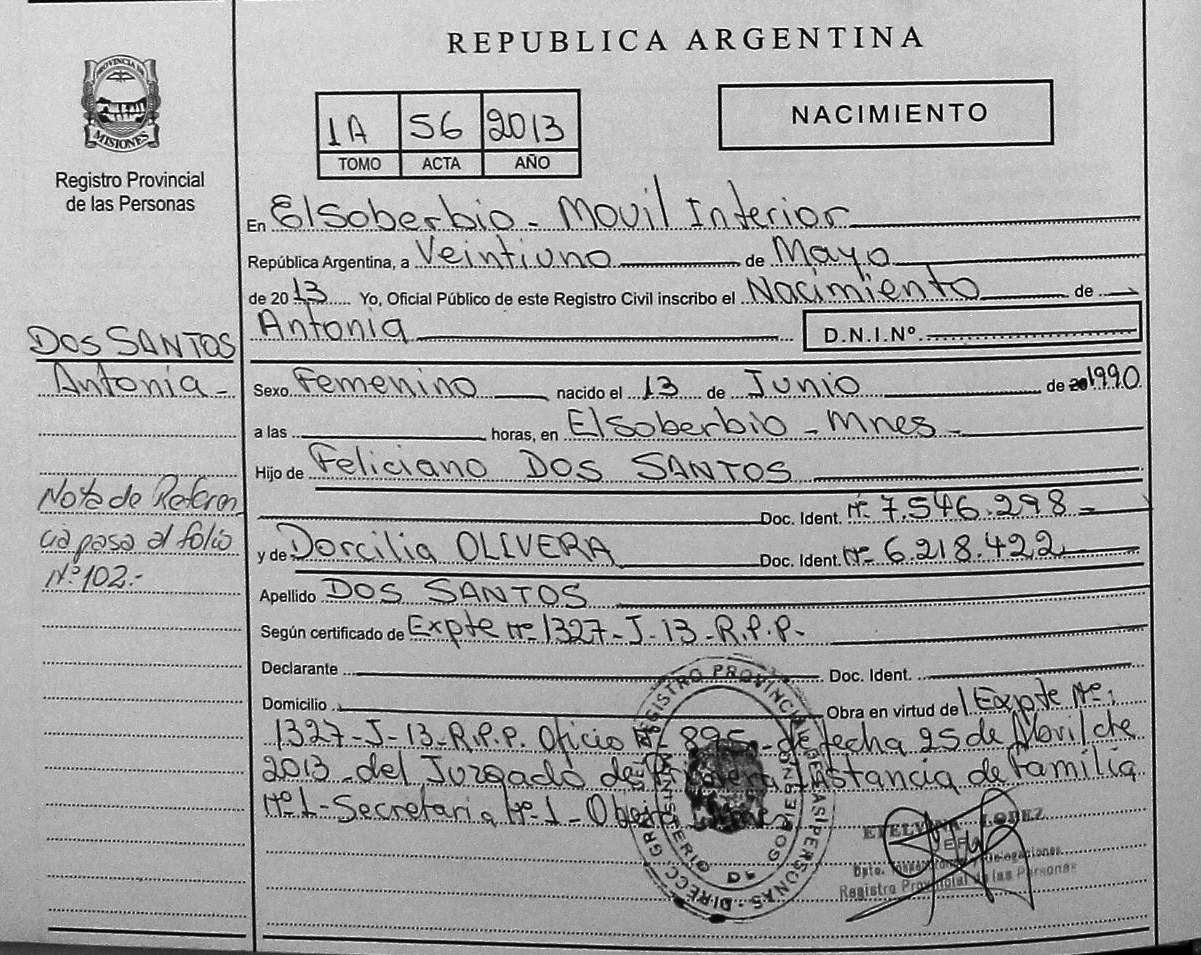 REPUBLICA ARGENTINA
PROVINCIA DE
MISIONES
Registro Provincial
de las Personas
1A 56 2013
TOMO ACTA AÑO
NACIMIENTO
En El Soberbio - Movil Interior
República Argentina, a Veintiuno de Mayo
de 2013 Yo, Oficial Público de este Registro Civil inscribo el Nacimiento de
Antonia D.N.I.Nº
DOS SANTOS
Antonia -
Sexo Femenino nacido el 13 de Junio de 20 1990
a las horas, en El Soberbio - Mnes -
Hijo de Feliciano DOS SANTOS
Doc. Ident. Nº 7.546.298 -
y de Dorcilia OLIVERA Doc. Ident. Nº 6.218.422
Nota de Referen
cia pasa al folio
Nº 102.-
Apellido DOS SANTOS
Según certificado de Expte Nº 1327-J-13-R.P.P.
Declarante Doc. Ident.
Domicilio Obra en virtud del Expte Nº:
1327-J-13-R.P.P. Oficio Nº 895 - de fecha 25 de Abril de
2013 - del Juzgado de Primera Instancia de familia
Nº 1 - Secretaria Nº 1 - Mnes
DIRECC. GRAL DEL REGISTRO PROVINCIAL DE LAS PERSONAS
MINISTERIO DE GOBIERNO
ETELVINA LOPEZ
JEFA
Dpto. Delegaciones
Registro Provincial de las Personas